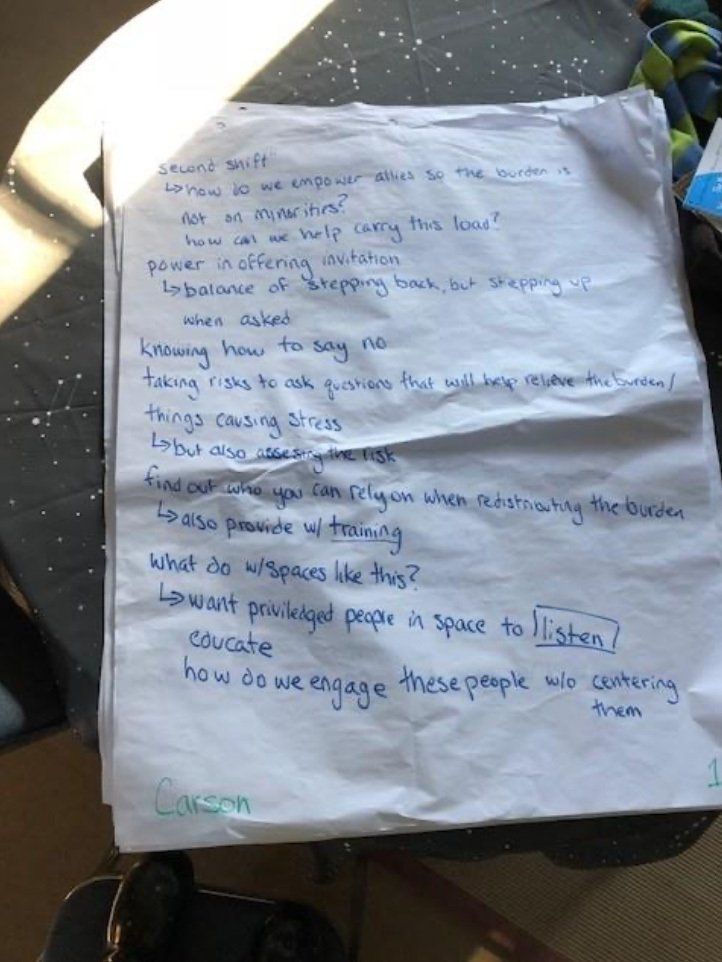 second shift"
↳how do we empower allies so the burden is
not on minorities?
how can we help carry this load?
power in offering invitation
↳balance of stepping back, but stepping up
when asked
knowing how to say no
taking risks to ask questions that will help relieve the burden/
things causing stress
↳but also assesing the risk
find out who you can rely on when redistributing the burden
↳also provide w/ training
what do w/spaces like this?
↳want priviledged people in space to listen/
educate
how do we engage these people w/o centering
them
Carson
1